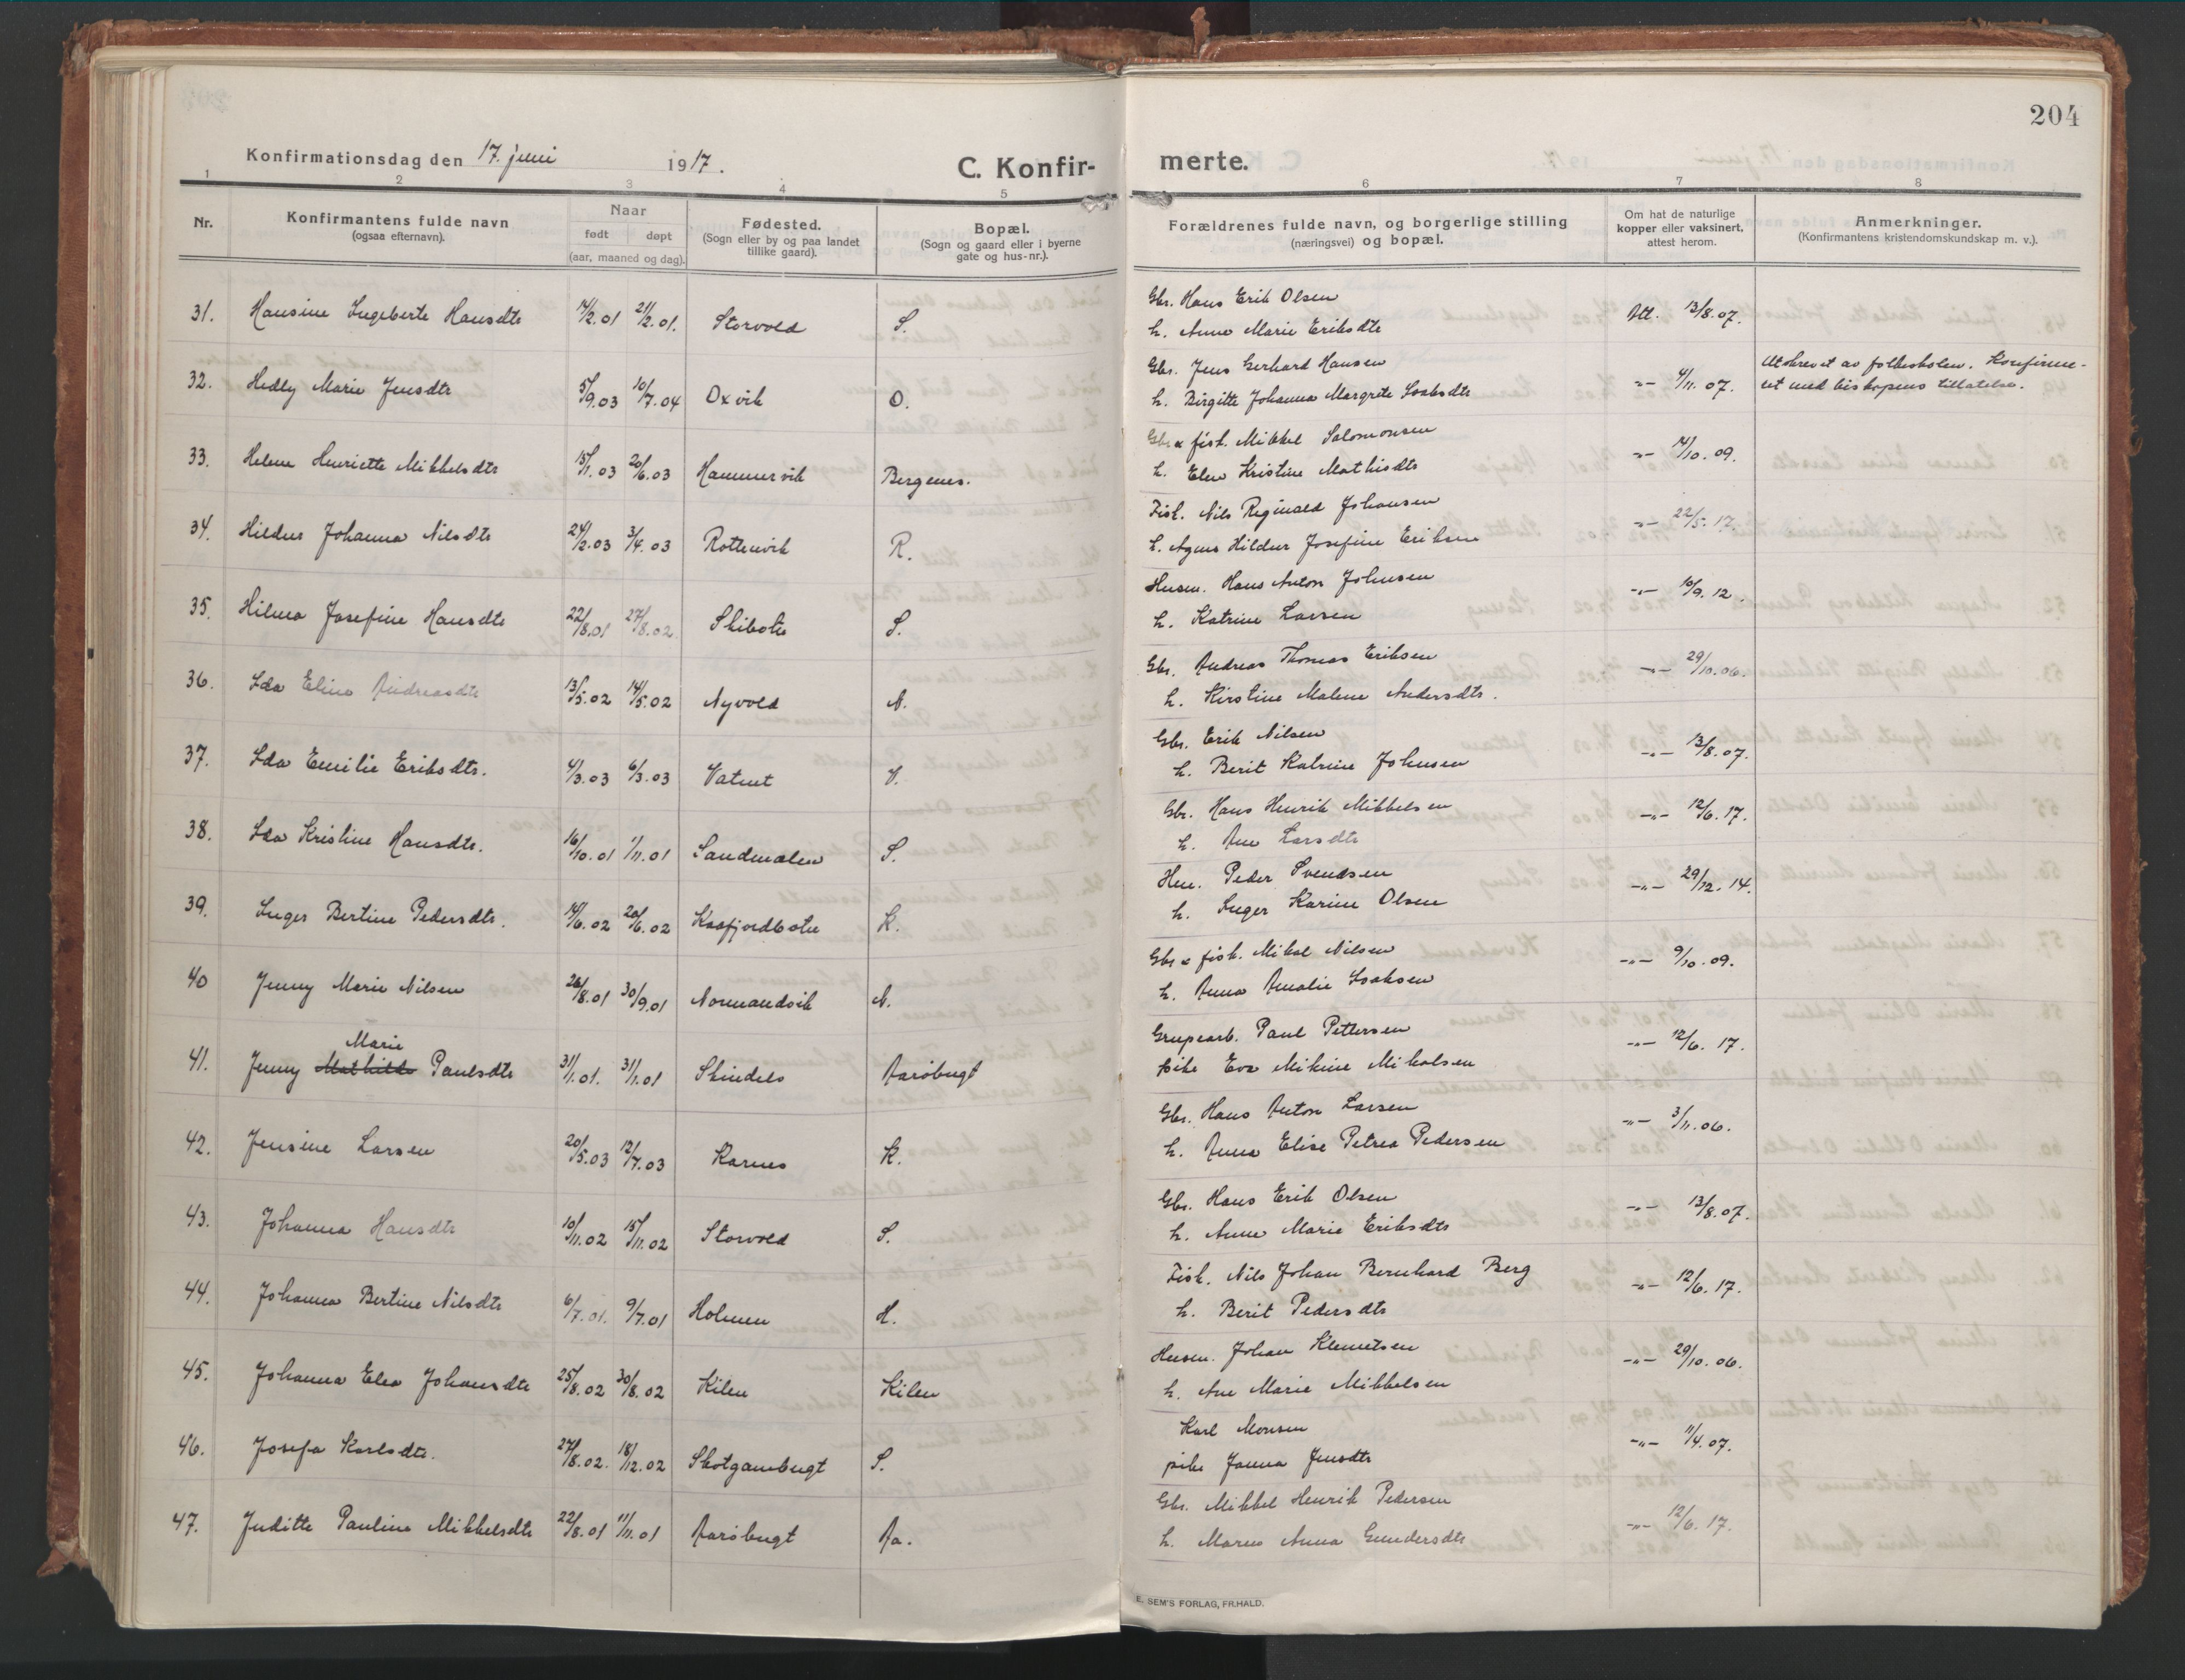 204
Konfirmationsdag den 17. juni 1917.
C. Konfir-
merte.
1 2 3 4 5 6 7 8
Nr.
Konfirmantens fulde navn
(ogsaa efternavn).
Naar
født døpt
(aar, maaned og dag).
Fødested.
(Sogn eller by og paa landet
tillike gaard).
Bopæl.
(Sogn og gaard eller i byerne
gate og hus-nr.).
Forældrenes fulde navn, og borgerlige stilling
(næringsvei) og bopæl.
Om hat de naturlige
kopper eller vaksinert,
attest herom.
Anmerkninger.
(Konfirmantens kristendomskundskap m. v.).
31. Hansine Ingeberte Hansdtr 14/2.01 21/2.01. Storvold S.
Gbr. Hans Erik Olsen
h. Anne Marie Eriksdtr
Att. 13/8.07.
32. Hedly Marie Jensdtr 5/9.03 10/7.04 Oxvik O.
Gbr. Jens Gerhard Hansen
h. Birgitte Johanna Margrete Isaksdtr
-"- 4/11.07.
Utskrevet av folkeskolen. Konfirme-
ret med biskopens tillatelse.
33. Helene Henriette Mikkelsdtr 15/1.03 20/6.03 Hammervik Bergenes.
Gbr & fisk. Mikkel Salomonsen
h. Elen Kristine Mathisdtr
-"- 14/10.09.
34. Hildur Johanna Nilsdtr 24/2.03 3/4.03 Rottenvik R.
Fisk. Nils Reginald Johansen
h. Agnes Hildur Josefine Eriksen
-"- 22/5.17.
35. Hilma Josefine Hansdtr 22/8.01 27/8.02 Skibotn S.
Husm. Hans Anton Johnsen
h. Katrine Larsen
-"- 10/9.12.
36. Ida Eline Andreasdtr 13/5.02 14/5.02 Nyvold N.
Gbr. Andreas Thomas Eriksen
h. Kirstine Malene Andersdtr.
-"- 29/10.06.
37. Ida Emilie Eriksdtr. 4/3.03 6/3.03 Vatnet V.
Gbr. Erik Nilsen
h. Berit Katrine Johnsen
-"- 13/8.07.
38. Ida Kristine Hansdtr. 16/10.01 1/11.01 Sandmælen S.
Gbr. Hans Henrik Mikkelsen
h. Ane Larsdtr
-"- 12/6.17.
39. Inger Bertine Pedersdtr. 14/6.02 20/6.02 Kaafjordbotn K.
Hm. Peder Svendsen
h. Inger Karine Olsen
-"- 29/12.14.
40 Jenny Marie Nilsen 26/8.01 30/9.01 Normandvik N.
Gbr & fisk. Mikal Nilsen
h. Anna Amalie Isaksen
-"- 9/10.09.
Marie
41. Jenny Mathilde Paulsdtr 31/1.01. 31/1.01 Skindelo Aarøbugt
Grupearb. Paul Pettersen
pike Eva Mikine Mikalsen
-"- 12/6.17.
42. Jensine Larsen 20/5.03 12/7.03 Karnes K.
Gbr. Hans Anton Larsen
h. Anna Elise Petrea Pedersen
-"- 3/11.06.
43. Johanna Hansdtr 10/11.02 15/11.02 Storvold S.
Gbr. Hans Erik Olsen
h. Anne Marie Eriksdtr
-"- 13/8.07.
44. Johanna Bertine Nilsdtr 6/7.01. 9/7.01 Holmen H.
Fisk. Nils Johan Bernhard Berg
h. Berit Pedersdtr
-"- 12/6.17.
45. Johanna Elea Johansdtr 25/8.02 30/8.02 Kilen Kilen
Husm. Johan Klemetsen
h. Ane Marie Mikkelsen
-"- 29/10.06.
46. Josefa Karlsdtr. 27/8.02. 18/12.02 Skotgambugt S.
Karl Monsen
pike Janna Jensdtr
-"- 11/4.07.
47. Juditte Pauline Mikkelsdtr 22/8.01 11/11.01 Aarøbugt Aa.
Gbr. Mikkel Henrik Pedersen
h. Maren Anna Gundersdtr
-"- 12/6.17.
E. SEM'S FORLAG, FR.HALD.